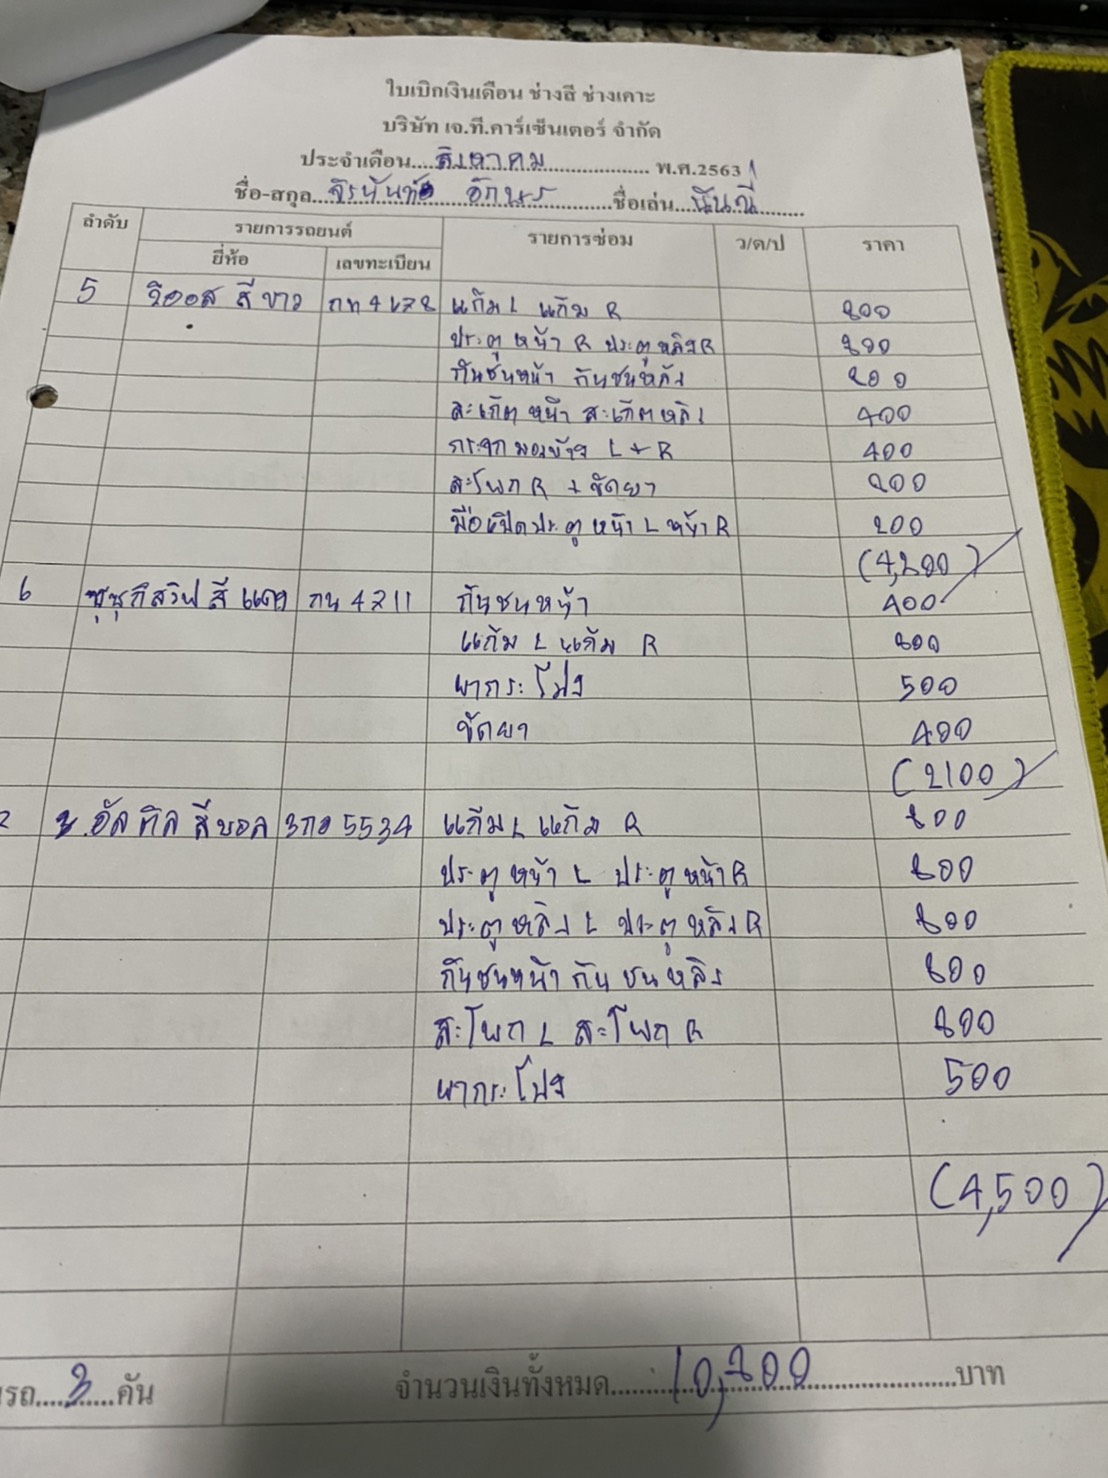 ใบเบิกเงินเดือน ช่างสี ช่างเคาะ
บริษัท เจ.ที.คาร์เซ็นเตอร์ จำกัด
ประจำเดือน....สิงหาคม.................... พ.ศ.2563
ชื่อ-สกุล.. อักษร ............ชื่อเล่น...
ลำดับ รายการรถยนต์ รายการซ่อม ว/ด/ป ราคา
ยี่ห้อ เลขทะเบียน
5 วีออส สีขาว กท 4678 แก้ม L แก้ม R 800
ประตูหน้า R ประตูหลัง R 800
กันชนหน้า กันชนหลัง 800
สะเก็ตหน้า สะเก็ตหลัง 400
กระจกมองข้าง L + R 400
สะโพก R + ขัดยา 800
มือเปิดประตูหน้า L หน้า R 200
(4,200)
6 ซุซุกิสวิฟ สีแดง กน 4211 กันชนหน้า 400
แก้ม L แก้ม R 800
ฝากระโปง 500
ขัดยา 400
(2100)
อัลติส สีบอล 3กอ 5534 แก้ม L แก้ม R 800
ประตูหน้า L ประตูหน้า R 800
ประตูหลัง L ประตูหลัง R 800
กันชนหน้า กันชนหลัง 800
สะโพก L สะโพก R 800
ฝากระโปง 500
(4,500)
รถ....3....คัน จำนวนเงินทั้งหมด........10,800..............บาท